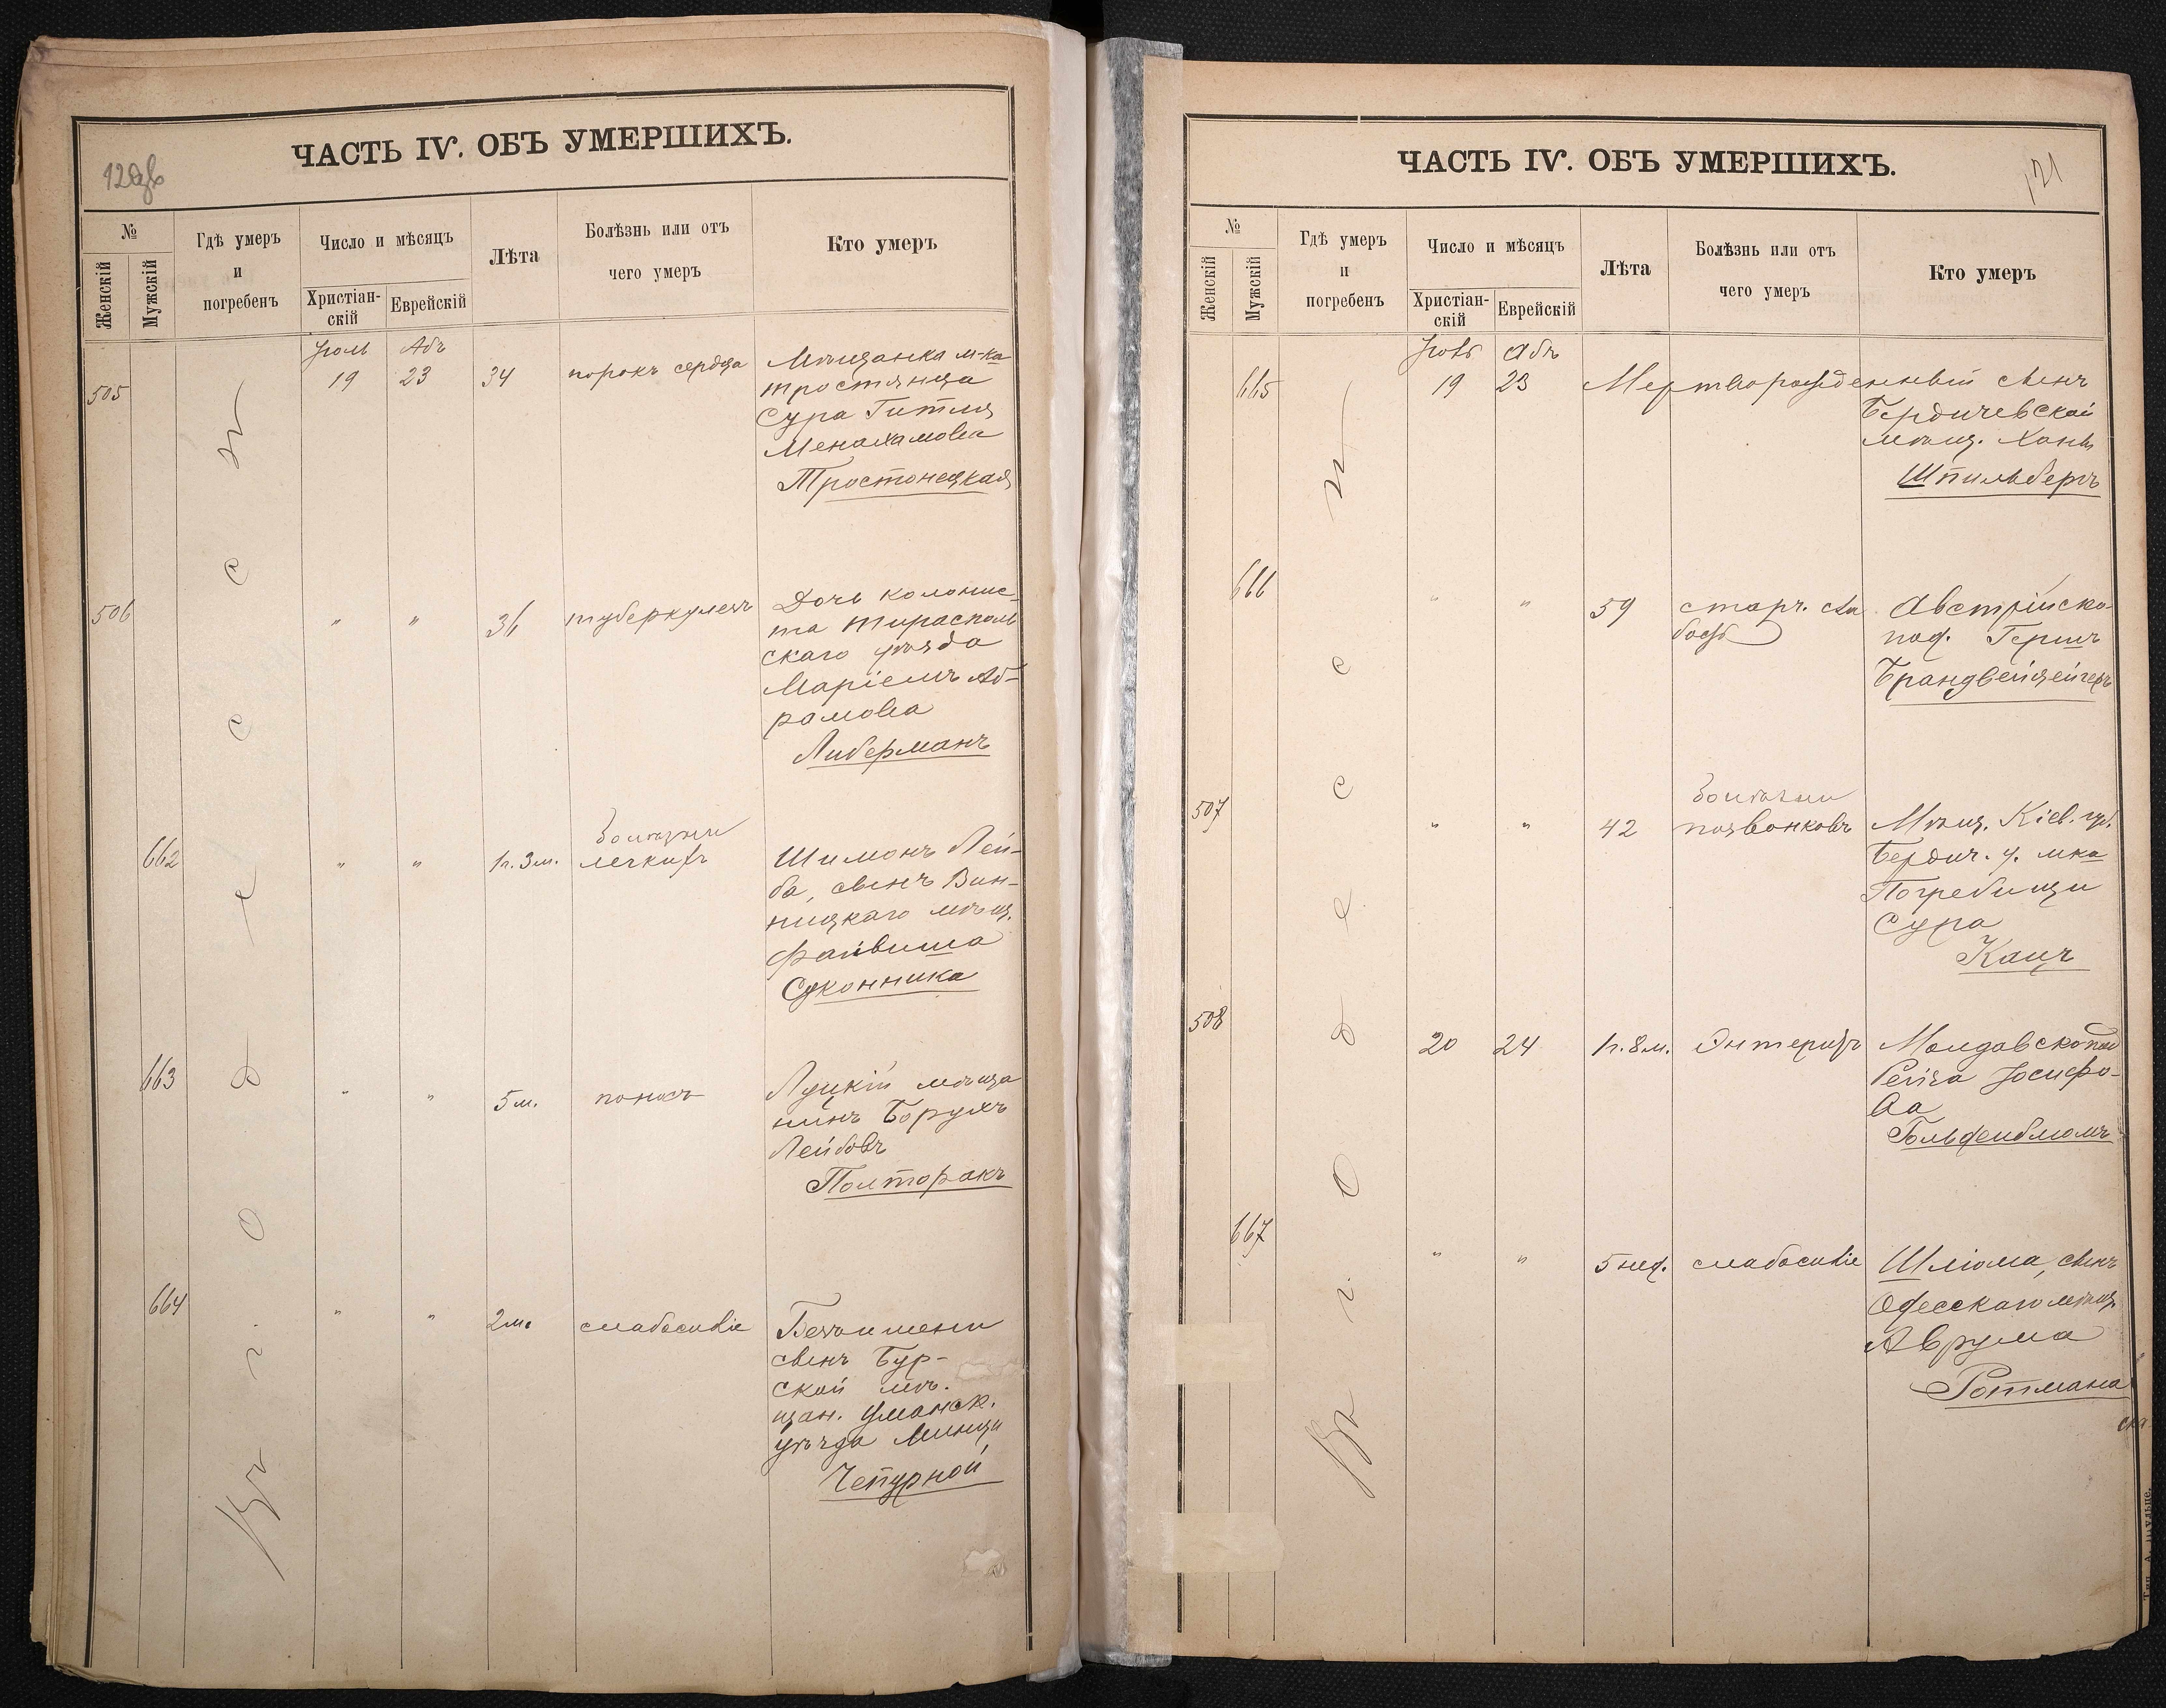 ЧАСТЬ IV. ОБЪ УМЕРШИХЪ.
№
Женскій
Мужскій
Гдѣ умеръ
и
погребенъ
Число и мѣсяцъ
Христіан-
скій
Еврейскій
Лѣта
Болѣзнь или отъ
чего умеръ
Кто умеръ
Іюль Абъ
505 19 23 34 порокъ сердца Мѣщанка м-ка
тростянца
Сура Гитля
Менахамова
Тростонецкая
506 " " 36 туберкулезъ Дочь колонис-
та тираспольскаго уѣзда
Маріемъ Аб-
рамова
Либерманъ
662 " " 1г.3м. болѣзни
легкихъ Шимонъ Лей-
ба, сынъ Вин-
ницкаго мѣщ.
Файвиша
Суконника
663 " " 5м. поносъ Луцкій мѣща
нинъ Борухъ
Лейбовъ
Полторакъ
664 " " 2м. слабосиліе Безъ имени
сынъ Бур-
ской мѣ-
щан. Уманск.
уѣзда Минци
Чепурной
въ г. Одессѣ
ЧАСТЬ IV. ОБЪ УМЕРШИХЪ.
121
№
Женскій
Мужскій
Гдѣ умеръ
и
погребенъ
Число и мѣсяцъ
Христіан-
скій
Еврейскій
Лѣта
Болѣзнь или отъ
чего умеръ
Кто умеръ
Іюль Абъ
665 19 23 Мерторожденный сынъ
Бердичевской
мѣщ. Ханы
Шпильбергъ
666 " " 59 старч. сла
бость Австрійско-
под. Гершъ
507 " " 42 болѣзни
позвонковъ Мѣщ. Кіев. губ.
Бердич. у. мка
Погребищи
Сура
Кацъ
508 20 24 1г.8м. Энтеритъ Молдавскопод
Рейза Іосифо-
ва
Гольденблюмъ
667 " " 5 нед. слабосиліе Шліома, сынъ
Одесскаго мѣщ.
Аврума
Ротмана
въ г. Одессѣ